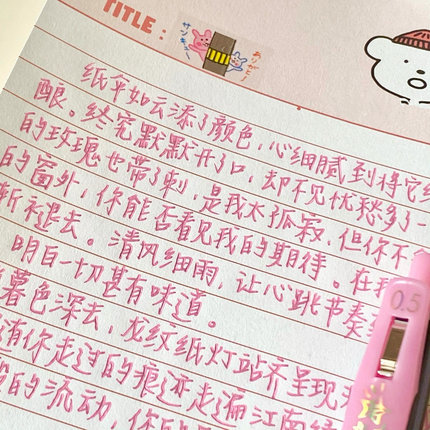 TITLE：
サンキュー
ありがとう
纸伞如云添了颜色，心细腻到将它
酿。终究默默开了口，却不见忧愁多了一
的玫瑰也带了刺，是我太孤寂，但你不
的窗外，你能否看见我的期待。在
渐褪去。清风细雨，让心跳节奏
明白一切甚有味道。
暮色深去，龙纹纸灯站齐呈现
有你走过的痕迹走遍江南
的流动，你的
0.5